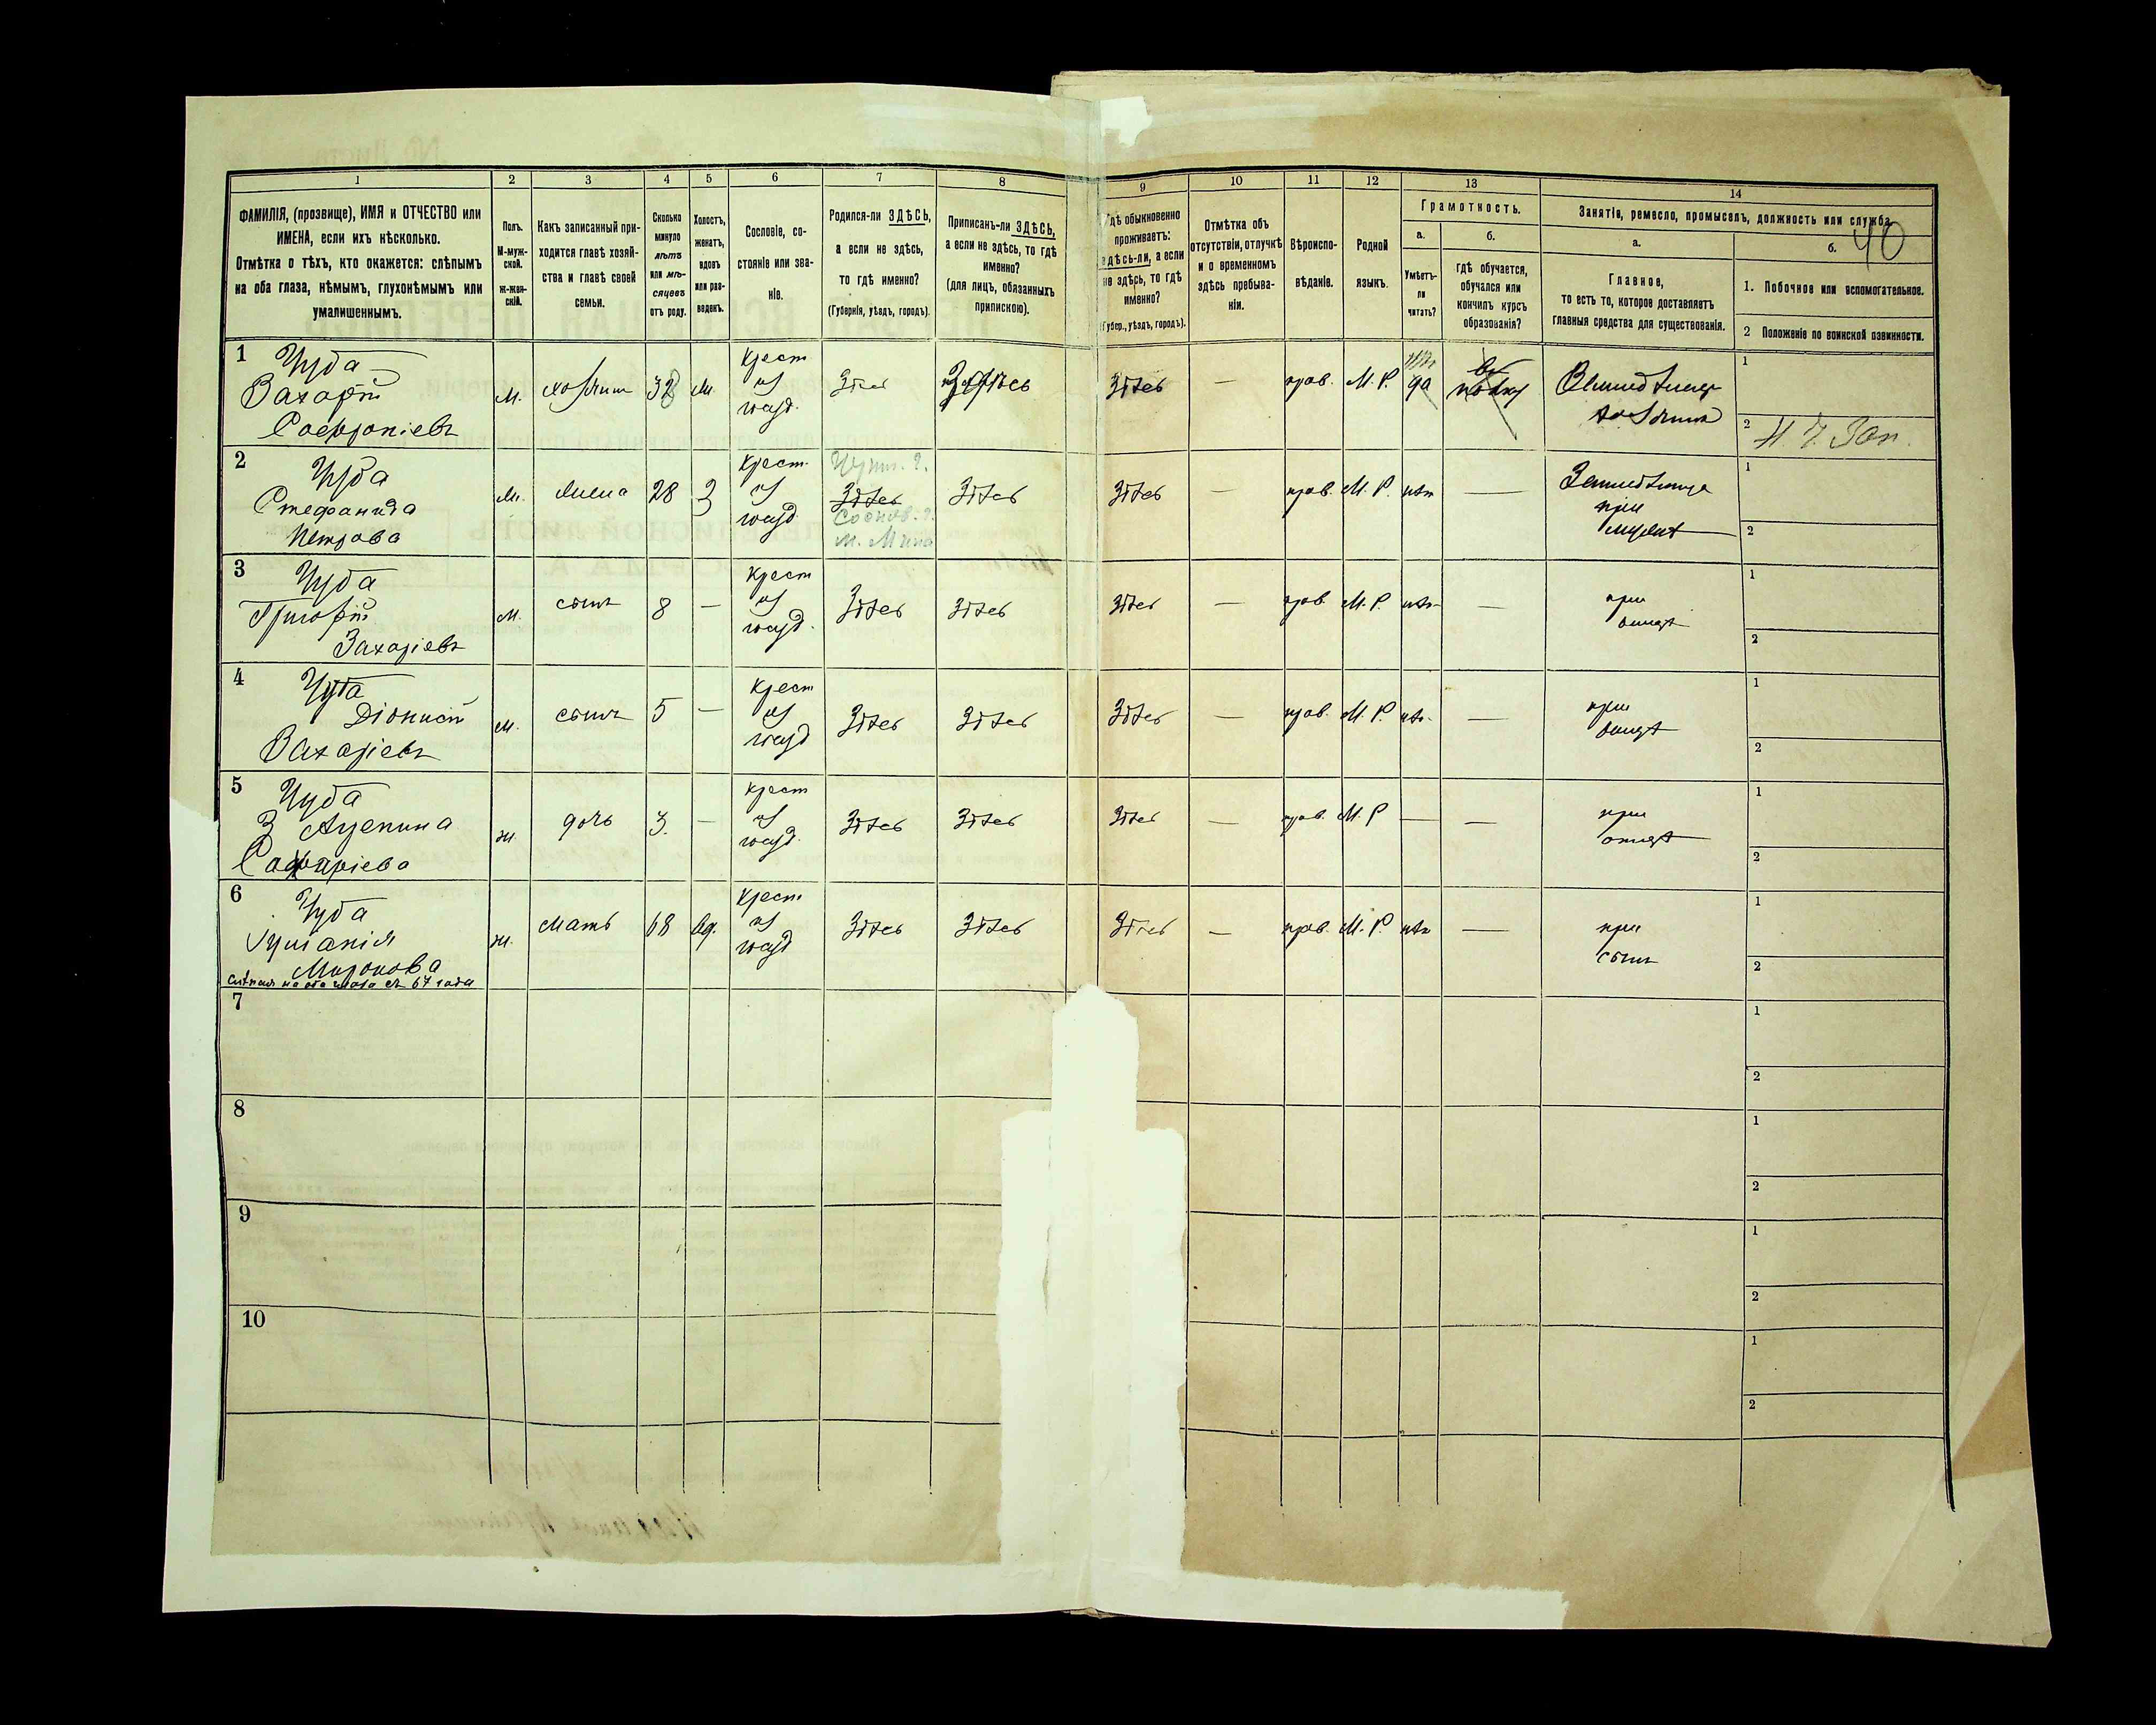 40
1 2 3 4 5 6 7 8 9 10 11 12 13 14
ФАМИЛІЯ, (прозвище), ИМЯ и ОТЧЕСТВО или
ИМЕНА, если ихъ нѣсколько.
Отмѣтка о тѣхъ, кто окажется: слѣпымъ
на оба глаза, нѣмымъ, глухонѣмымъ или
умалишеннымъ.
Полъ.
М-муж-
ской.
Ж-жен-
скій.
Какъ записанный при-
ходится главѣ хозяй-
ства и главѣ своей
семьи.
Сколько
минуло
лѣтъ
или мѣ-
сяцевъ
отъ роду.
Холостъ,
женатъ,
вдовъ
или раз-
веденъ.
Сословіе, со-
стояніе или зва-
ніе.
Родился-ли ЗДѢСЬ,
а если не здѣсь,
то гдѣ именно?
(Губернія, уѣздъ, городъ).
Приписанъ-ли ЗДѢСЬ,
а если не здѣсь, то гдѣ
именно?
(для лицъ, обязанныхъ
припискою).
Гдѣ обыкновенно
проживаетъ:
здѣсь-ли, а если
не здѣсь, то гдѣ
именно?
(Губер., уѣздъ, городъ).
Отмѣтка объ
отсутствіи, отлучкѣ
и о временномъ
здѣсь пребыва-
ніи.
Вѣроиспо-
вѣданіе.
Родной
языкъ.
Грамотность.
а.
Умѣетъ-
ли
читать?
б.
гдѣ обучается,
обучался или
кончилъ курсъ
образованія?
Занятіе, ремесло, промыселъ, должность или служба.
а.
Главное,
то есть то, которое доставляетъ
главныя средства для существованія.
б.
1. Побочное или вспомогательное.
2 Положеніе по воинской повинности.
1 Чуба
Захарій
Софроніевъ
м. хозяинъ 32
крест
из
здѣсь здѣсь здѣсь — прав. М. Р. да
хозяинъ
1
2
2 Чуба
Стефанида
Петрова
жена 28 з
крест.
из
здѣсь здѣсь здѣсь — прав. М. Р. нѣт —
при
мужѣ
1
2
3 Чуба
Григорій
Захаріевъ
м. сынъ 8 —
крест
из
здѣсь здѣсь здѣсь — прав. М. Р. нѣт —
при
отцѣ
1
2
4 Чуба
Діонисій
Захаріевъ
м. сынъ 5 —
крест
из
здѣсь здѣсь здѣсь — прав. М. Р. нѣт —
при
отцѣ
1
2
5 Чуба
Захаріева
ж. дочь 3. —
крест
из
здѣсь здѣсь здѣсь — прав. М. Р — —
при
отцѣ
1
2
6 Чуба
Миронова
слѣпая на оба глаза съ 67 года
ж. мать 68 вд.
крест
из
здѣсь здѣсь здѣсь — прав. М. Р. нѣт —
при
сынѣ
1
2
7
1
2
8
1
2
9
1
2
10
1
2